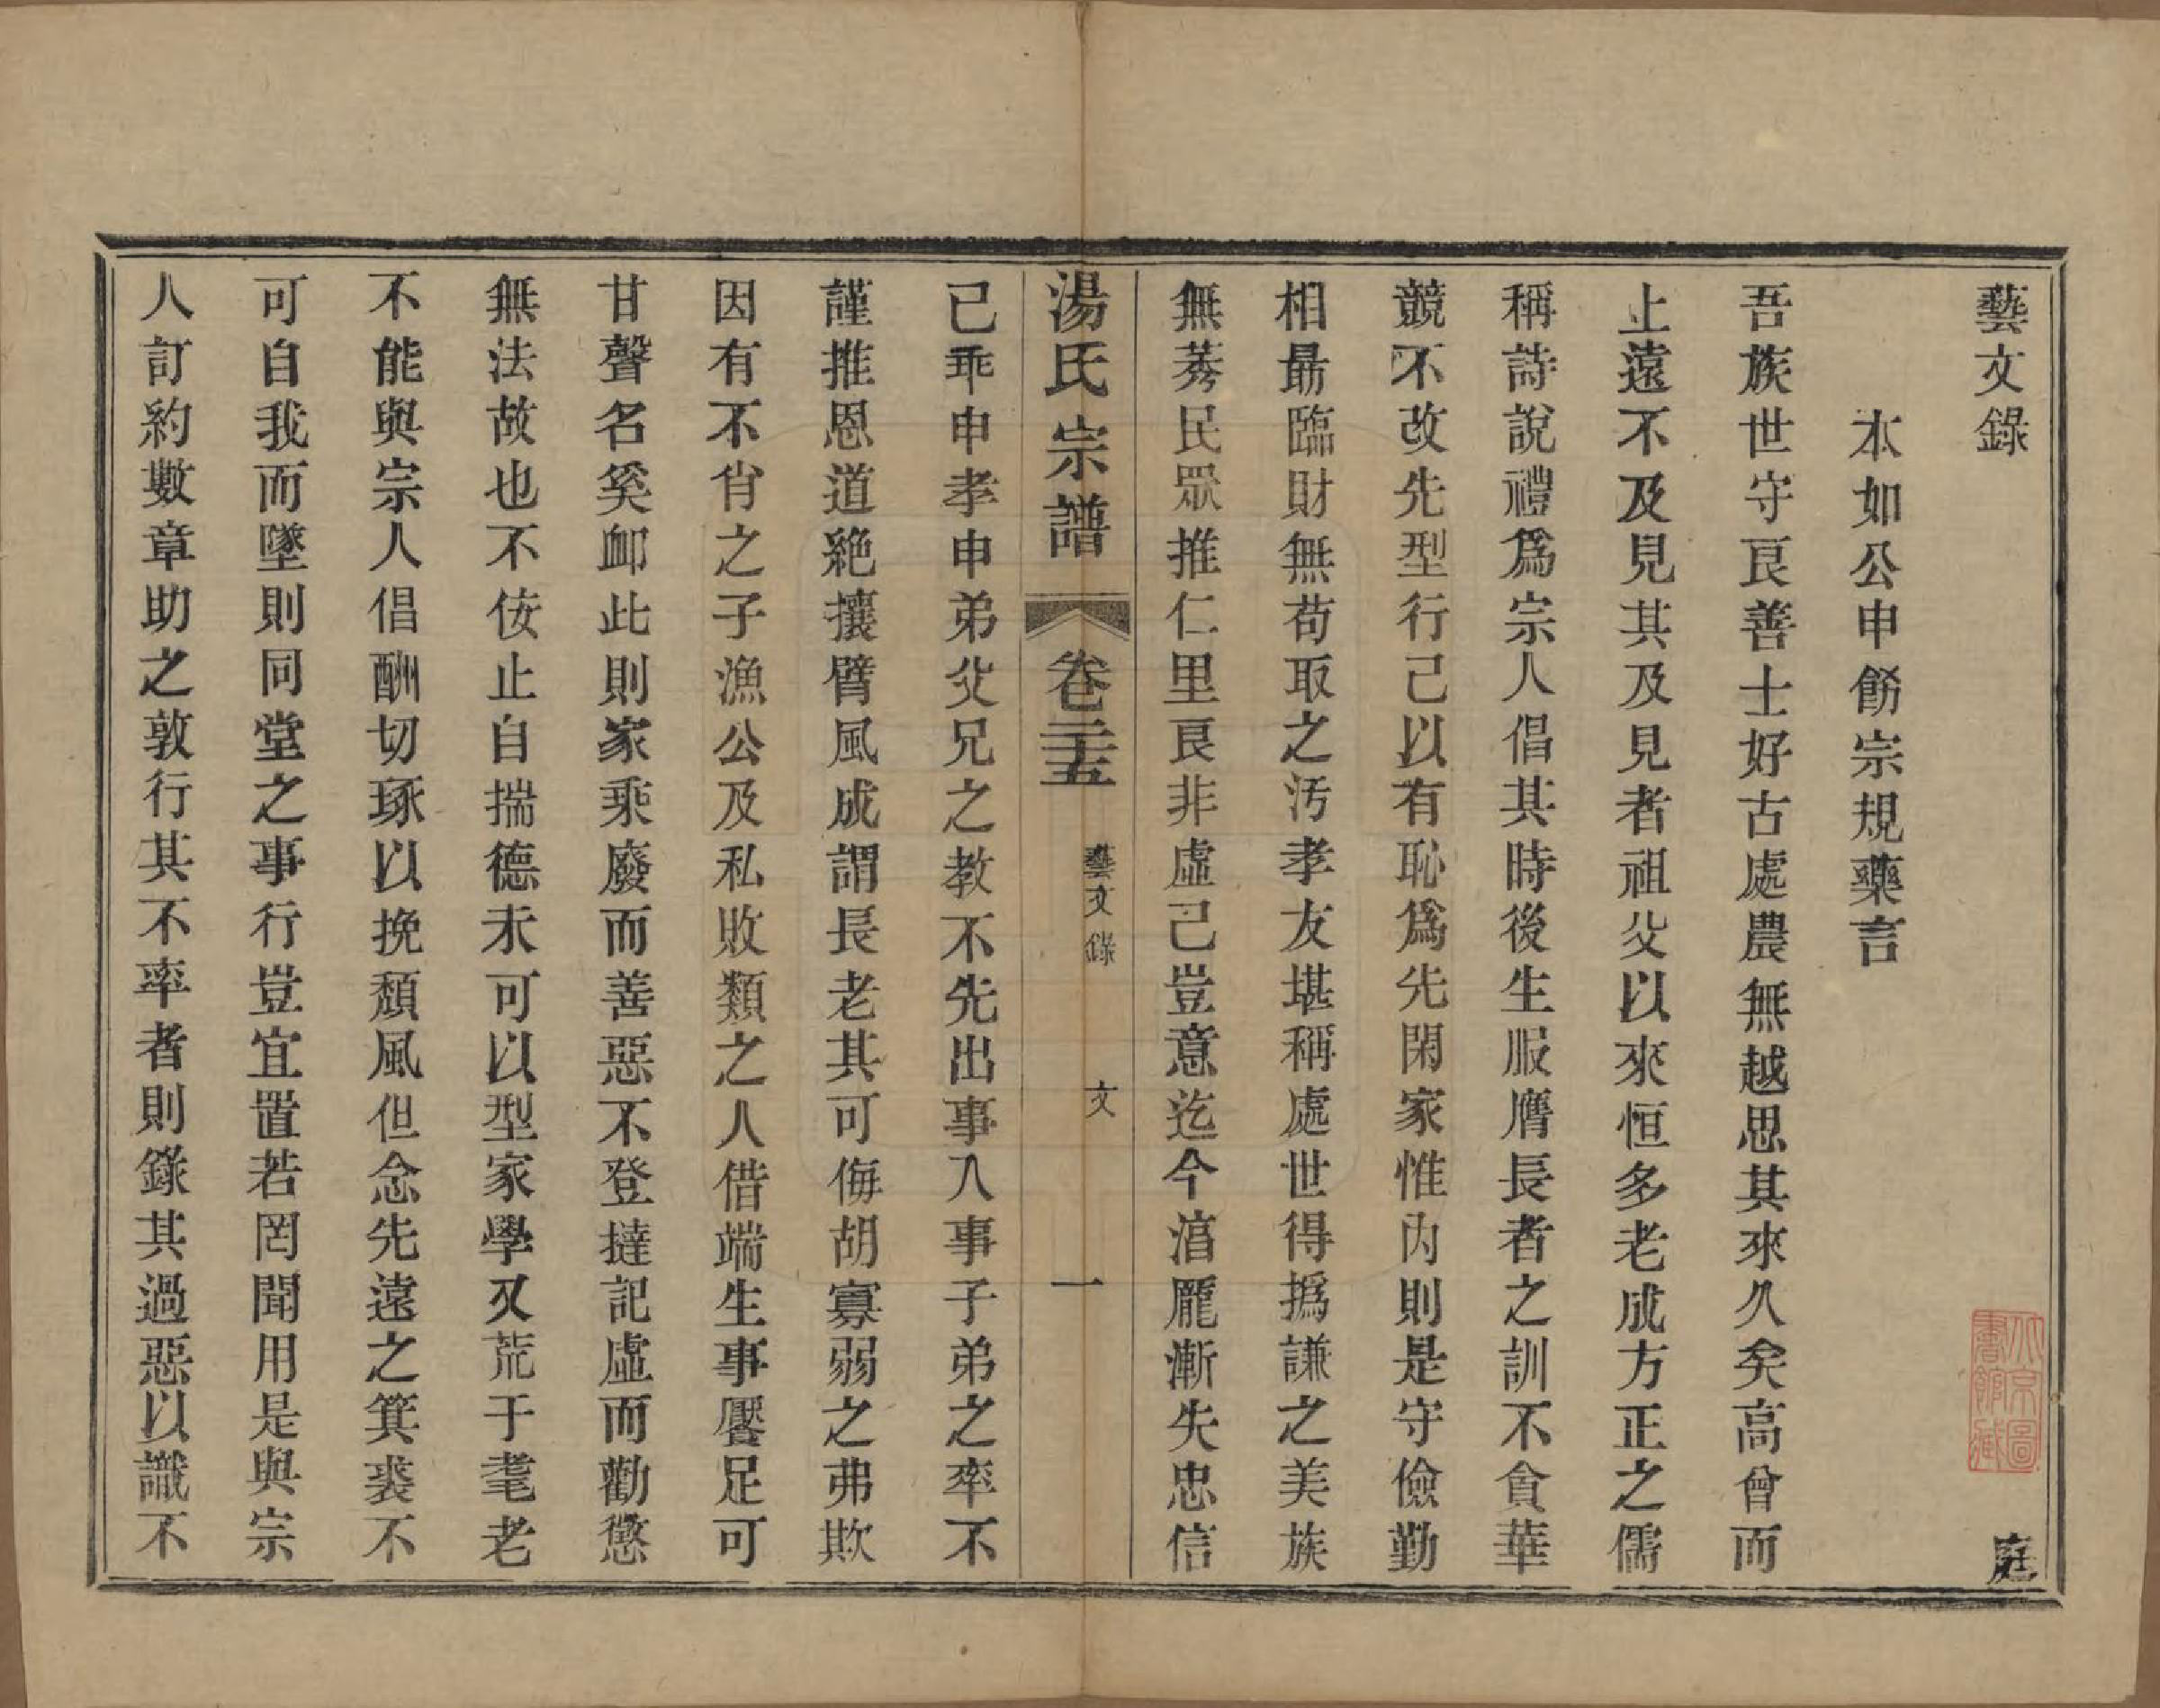 藝文錄
庭
本如公申飭宗規藥言
吾族世守良善士好古處農無越思其來久矣高曾而
上遠不及見其及見者祖父以來恒多老成方正之儒
稱詩說禮爲宗人倡其時後生服膺長者之訓不貪華
競不改先型行己以有恥爲先閑家惟內則是守儉勤
相勗臨財無苟取之汚孝友堪稱處世得撝謙之美族
無莠民眾推仁里良非虛已豈意迄今湻龐漸失忠信
湯氏宗譜 卷二十五 藝文錄 文 一
已乖申孝申弟父兄之教不先出事入事子弟之率不
謹推恩道絕攘臂風成謂長老其可侮胡寡弱之弗欺
因有不肖之子漁公及私敗類之人借端生事饜足可
甘聲名奚卹此則家乘廢而善惡不登撻記虛而勸懲
無法故也不佞止自揣德未可以型家學又荒于耄老
不能與宗人倡酬切琢以挽頹風但念先遠之箕裘不
可自我而墜則同堂之事行豈宜置若罔聞用是與宗
人訂約數章助之敦行其不率者則錄其過惡以識不
北京圖書館藏